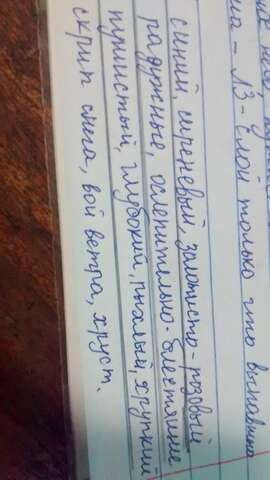 слой только что
синий, сиреневый, золотисто-розовый
радужные, ослепительно-блестящие
пушистый, глубокий, талый, хрупкий
скрип снега, вой ветра, хруст.